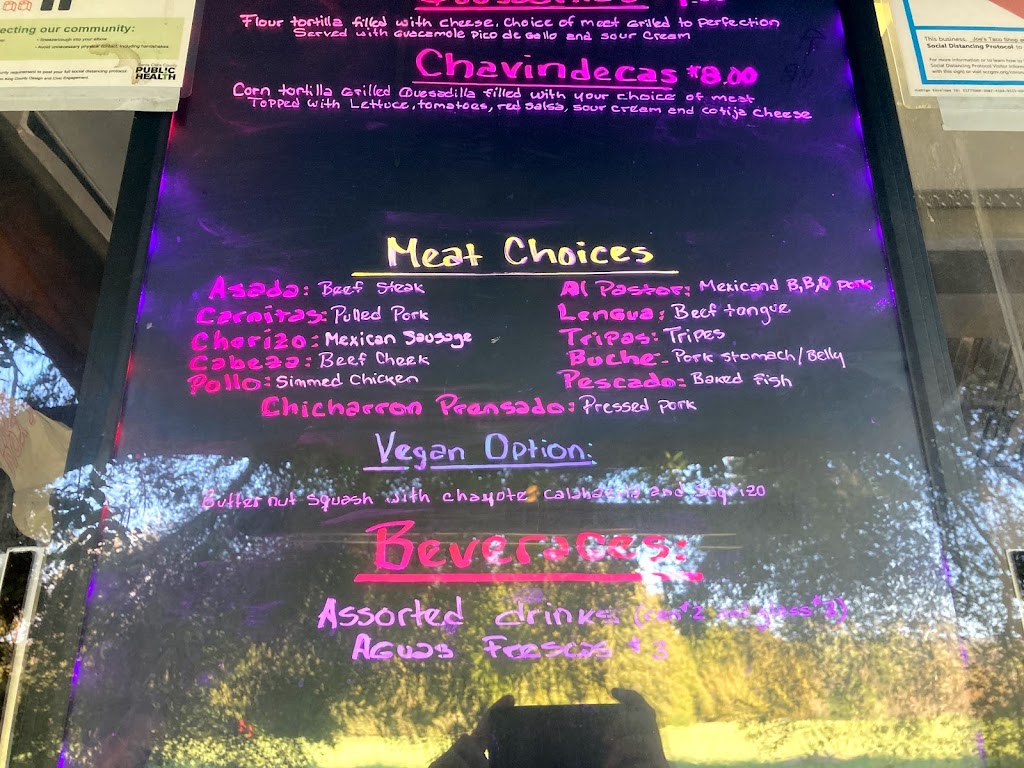 ecting our community:
• Sneeze/cough into your elbow
• Avoid unnecessary physical contact, including handshakes.
PUBLIC
HEALTH
This business, Joe's Taco Shop
Social Distancing Protocol to
Flour tortilla filled with cheese, choice of meat Grilled to perfection
Served with Guacamole Pico de Gallo and sour Cream
Chavindecas $8.00
Corn tortilla Grilled Quesadilla filled with your choice of meat
Topped with Lettuce, tomatoes, red salsa, sour cream and cotija cheese
Meat Choices
Asada: Beef Steak
Al Pastor: Mexicand B,B,Q pork
Carnitas: Pulled Pork
Lengua: Beef tongue
Chorizo: Mexican Sausage
Tripas: Tripes
Cabeza: Beef Cheek
Buche- Pork stomach/Belly
Pollo: Simmed Chicken
Pescado: Baked Fish
Chicharron Prensado: Pressed pork
Vegan Option:
Butter nut squash with chayote and
Beverages:
Assorted drinks (can $2 glass $3)
Aguas Frescas $3